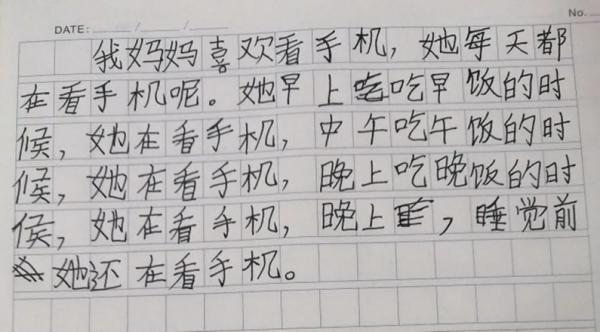 DATE: / /
No.
我妈妈喜欢看手机，她每天都
在看手机呢。她早上吃早饭的时
候，她在看手机，中午吃午饭的时
候，她在看手机，晚上吃晚饭的时
候，她在看手机，晚上，睡觉前
她还在看手机。